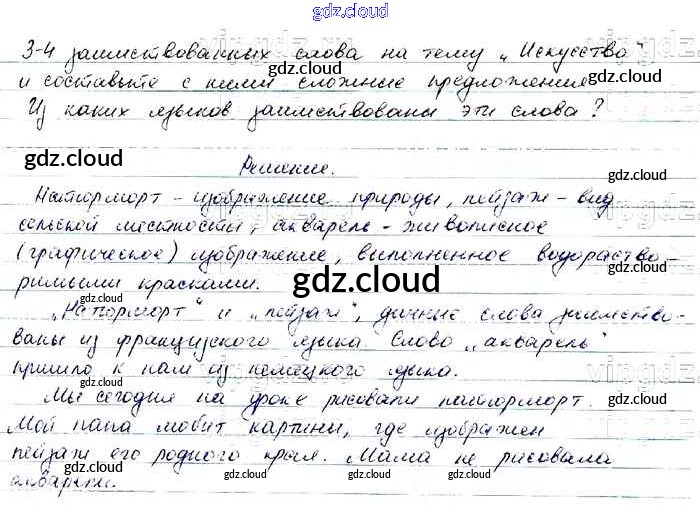 gdz.cloud
3-4 заимствованных слова на тему „Искусство"
и составьте с ними сложные предложения
gdz.cloud
gdz.cloud
Из каких языков заимствованы эти слова?
gdz.cloud
Решение.
gdz.cloud
Натюрморт - изображение природы, пейзаж - вид
gdz.cloud
gdz.cloud
сельской местности, акварель - живописное
(графическое) изображение, выполненное водораство-
gdz.cloud
римыми красками.
gdz.cloud
„Натюрморт" и „пейзаж", данные слова заимство-
gdz.cloud
gdz.cloud
ваны из французского языка. Слово „акварель"
пришло к нам из немецкого языка.
gdz.cloud
Мы сегодня на уроке рисовали натюрморт.
gdz.cloud
gdz.cloud
Мой папа любит картины, где изображен
пейзаж его родного края. Мама не рисовала
gdz.cloud
gdz.cloud
gdz.cloud
акварели.